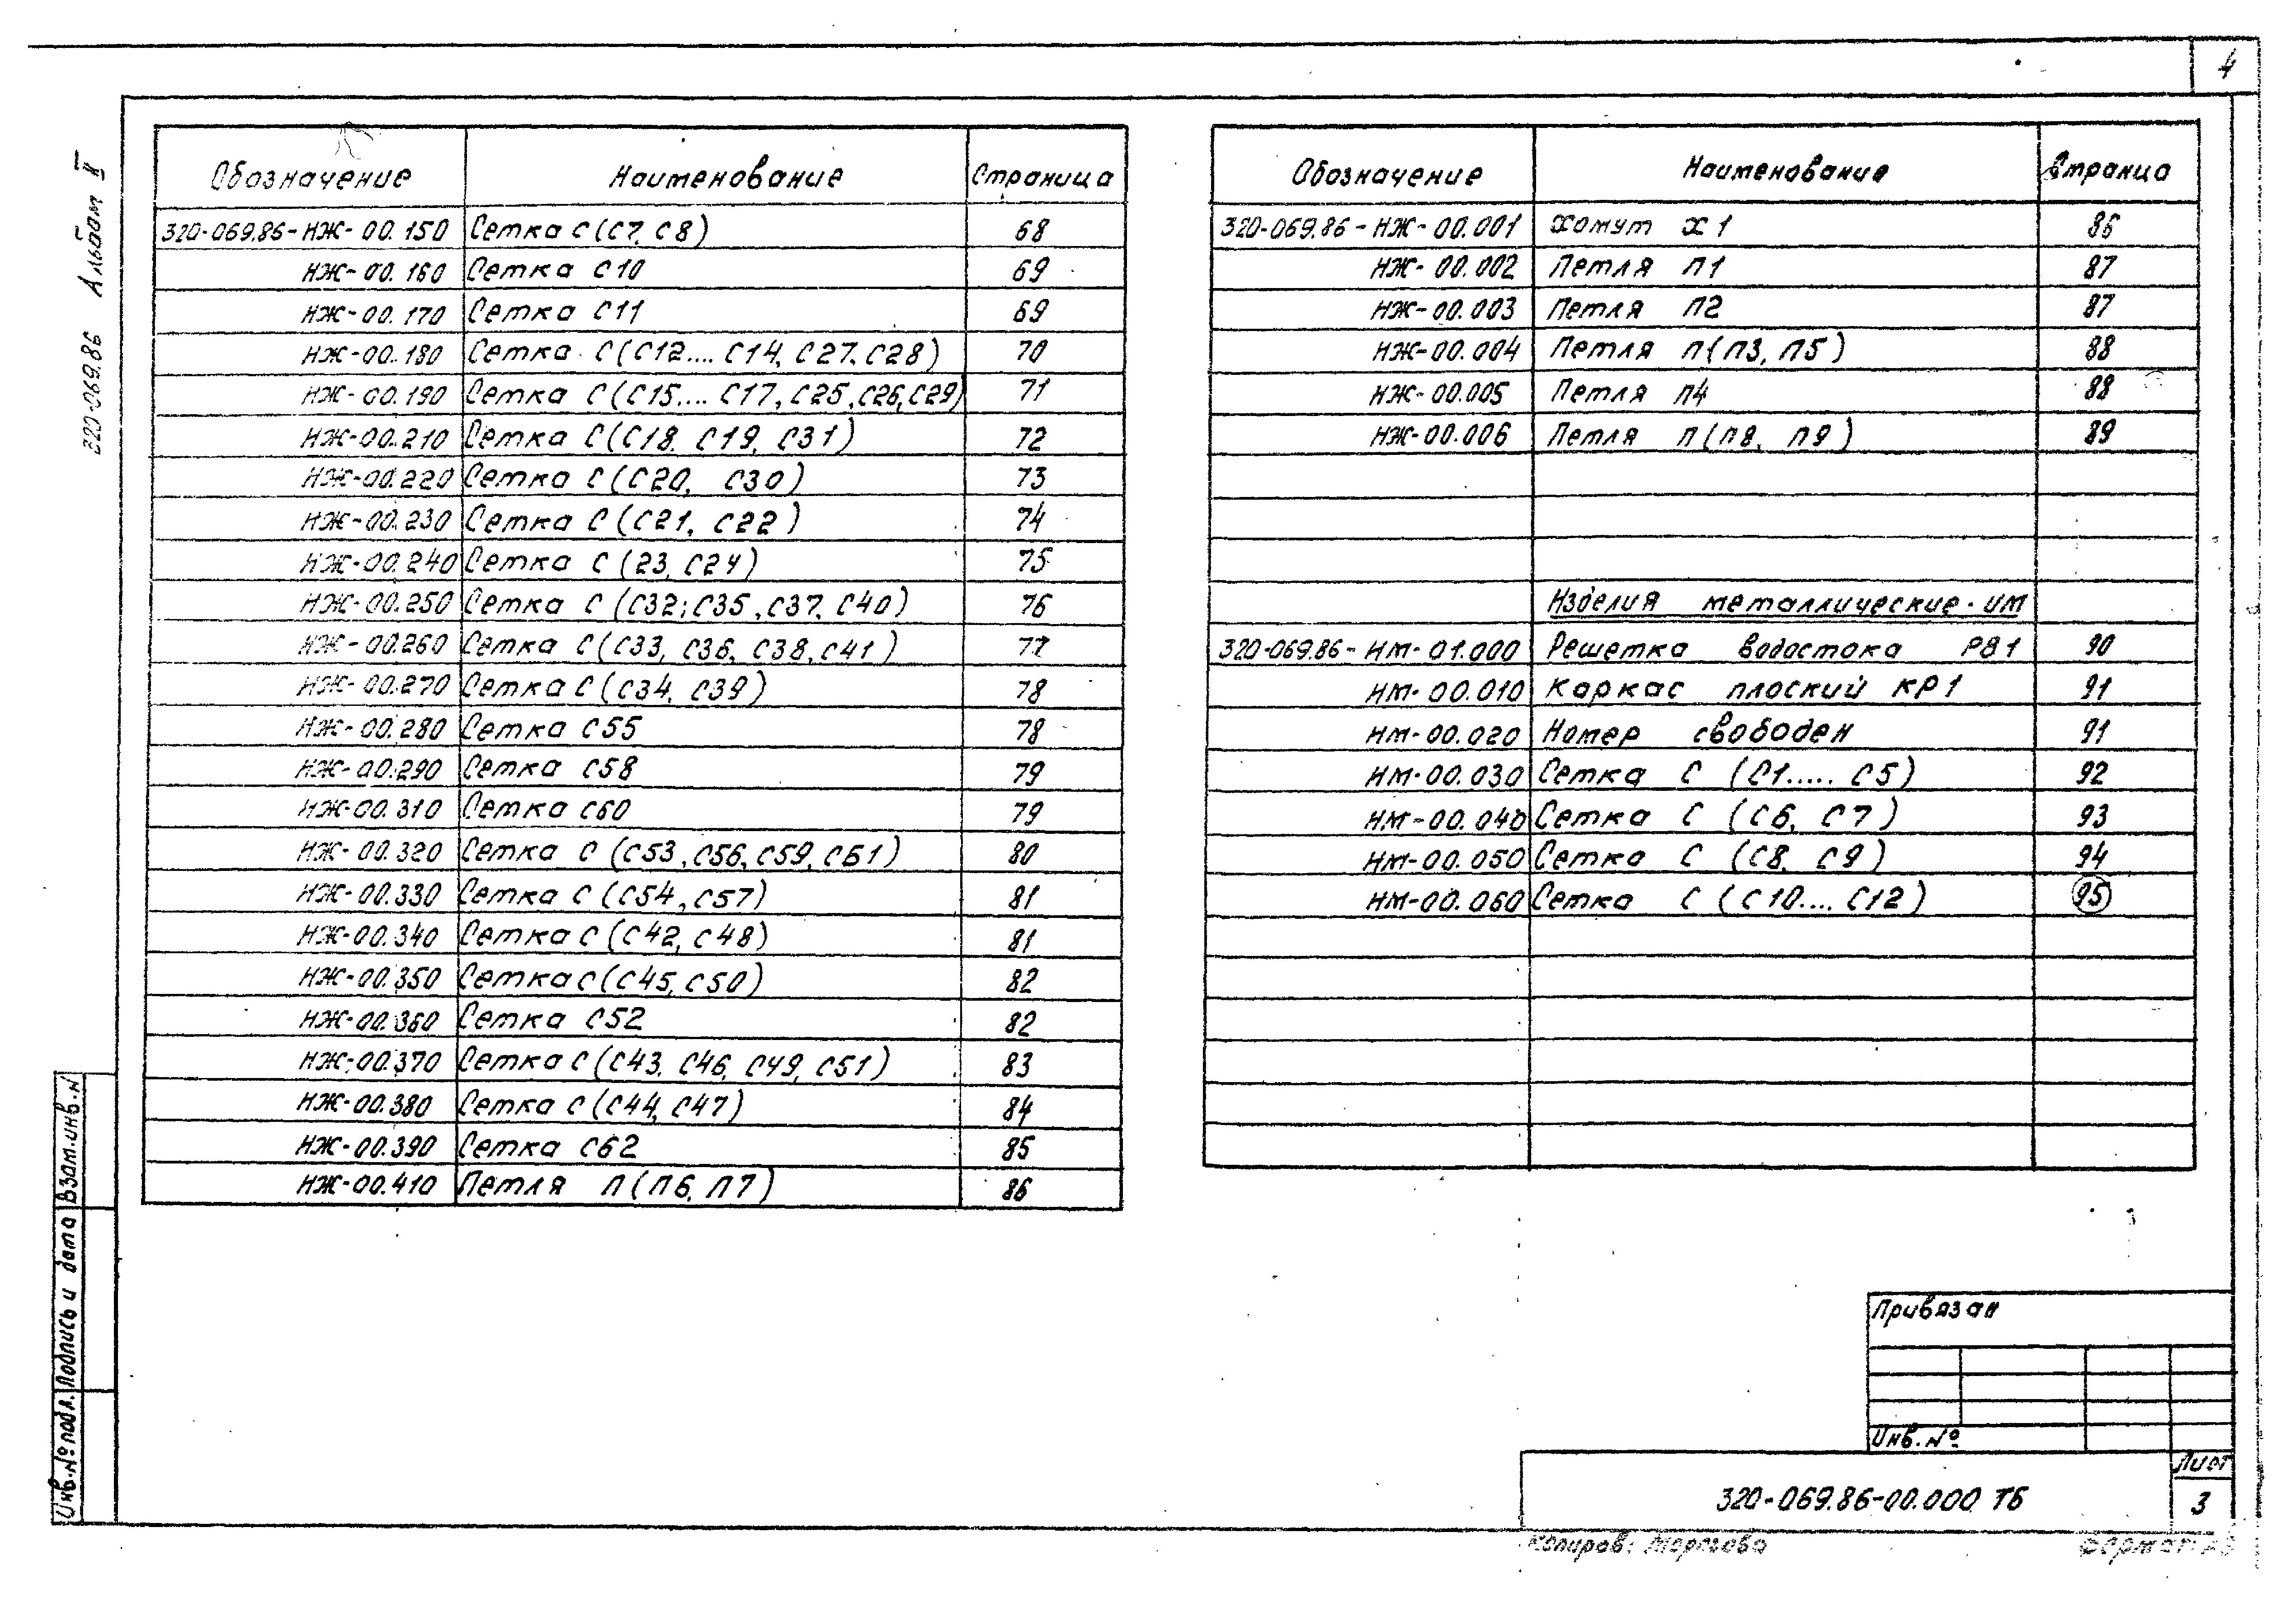 4
320-069.86 Альбом II
Обозначение Наименование Страница
320-069.86-НЖ-00.150 Сетка С (С7, С8) 68
НЖ-00.160 Сетка С10 69
НЖ-00.170 Сетка С11 69
НЖ-00.180 Сетка С (С12.... С14, С27, С28) 70
НЖ-00.190 Сетка С (С15.... С17, С25, С26, С29) 71
НЖ-00.210 Сетка С (С18, С19, С31) 72
НЖ-00.220 Сетка С (С20, С30) 73
НЖ-00.230 Сетка С (С21, С22) 74
НЖ-00.240 Сетка С (23, С24) 75
НЖ-00.250 Сетка С (С32; С35, С37, С40) 76
НЖ-00.260 Сетка С (С33, С36, С38, С41) 77
НЖ-00.270 Сетка С (С34, С39) 78
НЖ-00.280 Сетка С55 78
НЖ-00.290 Сетка С58 79
НЖ-00.310 Сетка С60 79
НЖ-00.320 Сетка С (С53, С56, С59, С61) 80
НЖ-00.330 Сетка С (С54, С57) 81
НЖ-00.340 Сетка С (С42, С48) 81
НЖ-00.350 Сетка С (С45, С50) 82
НЖ-00.360 Сетка С52 82
НЖ-00.370 Сетка С (С43, С46, С49, С51) 83
НЖ-00.380 Сетка С (С44, С47) 84
НЖ-00.390 Сетка С62 85
НЖ-00.410 Петля П (П6, П7) 86
Обозначение Наименование Страница
320-069.86-НЖ-00.001 Хомут Х1 86
НЖ-00.002 Петля П1 87
НЖ-00.003 Петля П2 87
НЖ-00.004 Петля П (П3, П5) 88
НЖ-00.005 Петля П4 88
НЖ-00.006 Петля П (П8, П9) 89
Изделия металлические-ИМ
320-069.86-НМ-01.000 Решетка водостока РВ1 90
НМ-00.010 Каркас плоский КР1 91
НМ-00.020 Номер свободен 91
НМ-00.030 Сетка С (С1..... С5) 92
НМ-00.040 Сетка С (С6, С7) 93
НМ-00.050 Сетка С (С8, С9) 94
НМ-00.060 Сетка С (С10.... С12) 95
Инв.№подл. Подпись и дата Взам.инв.N
Привязан
Инв.№
320-069.86-00.000 ТБ
Лист
3
Копиров:
Формат А3